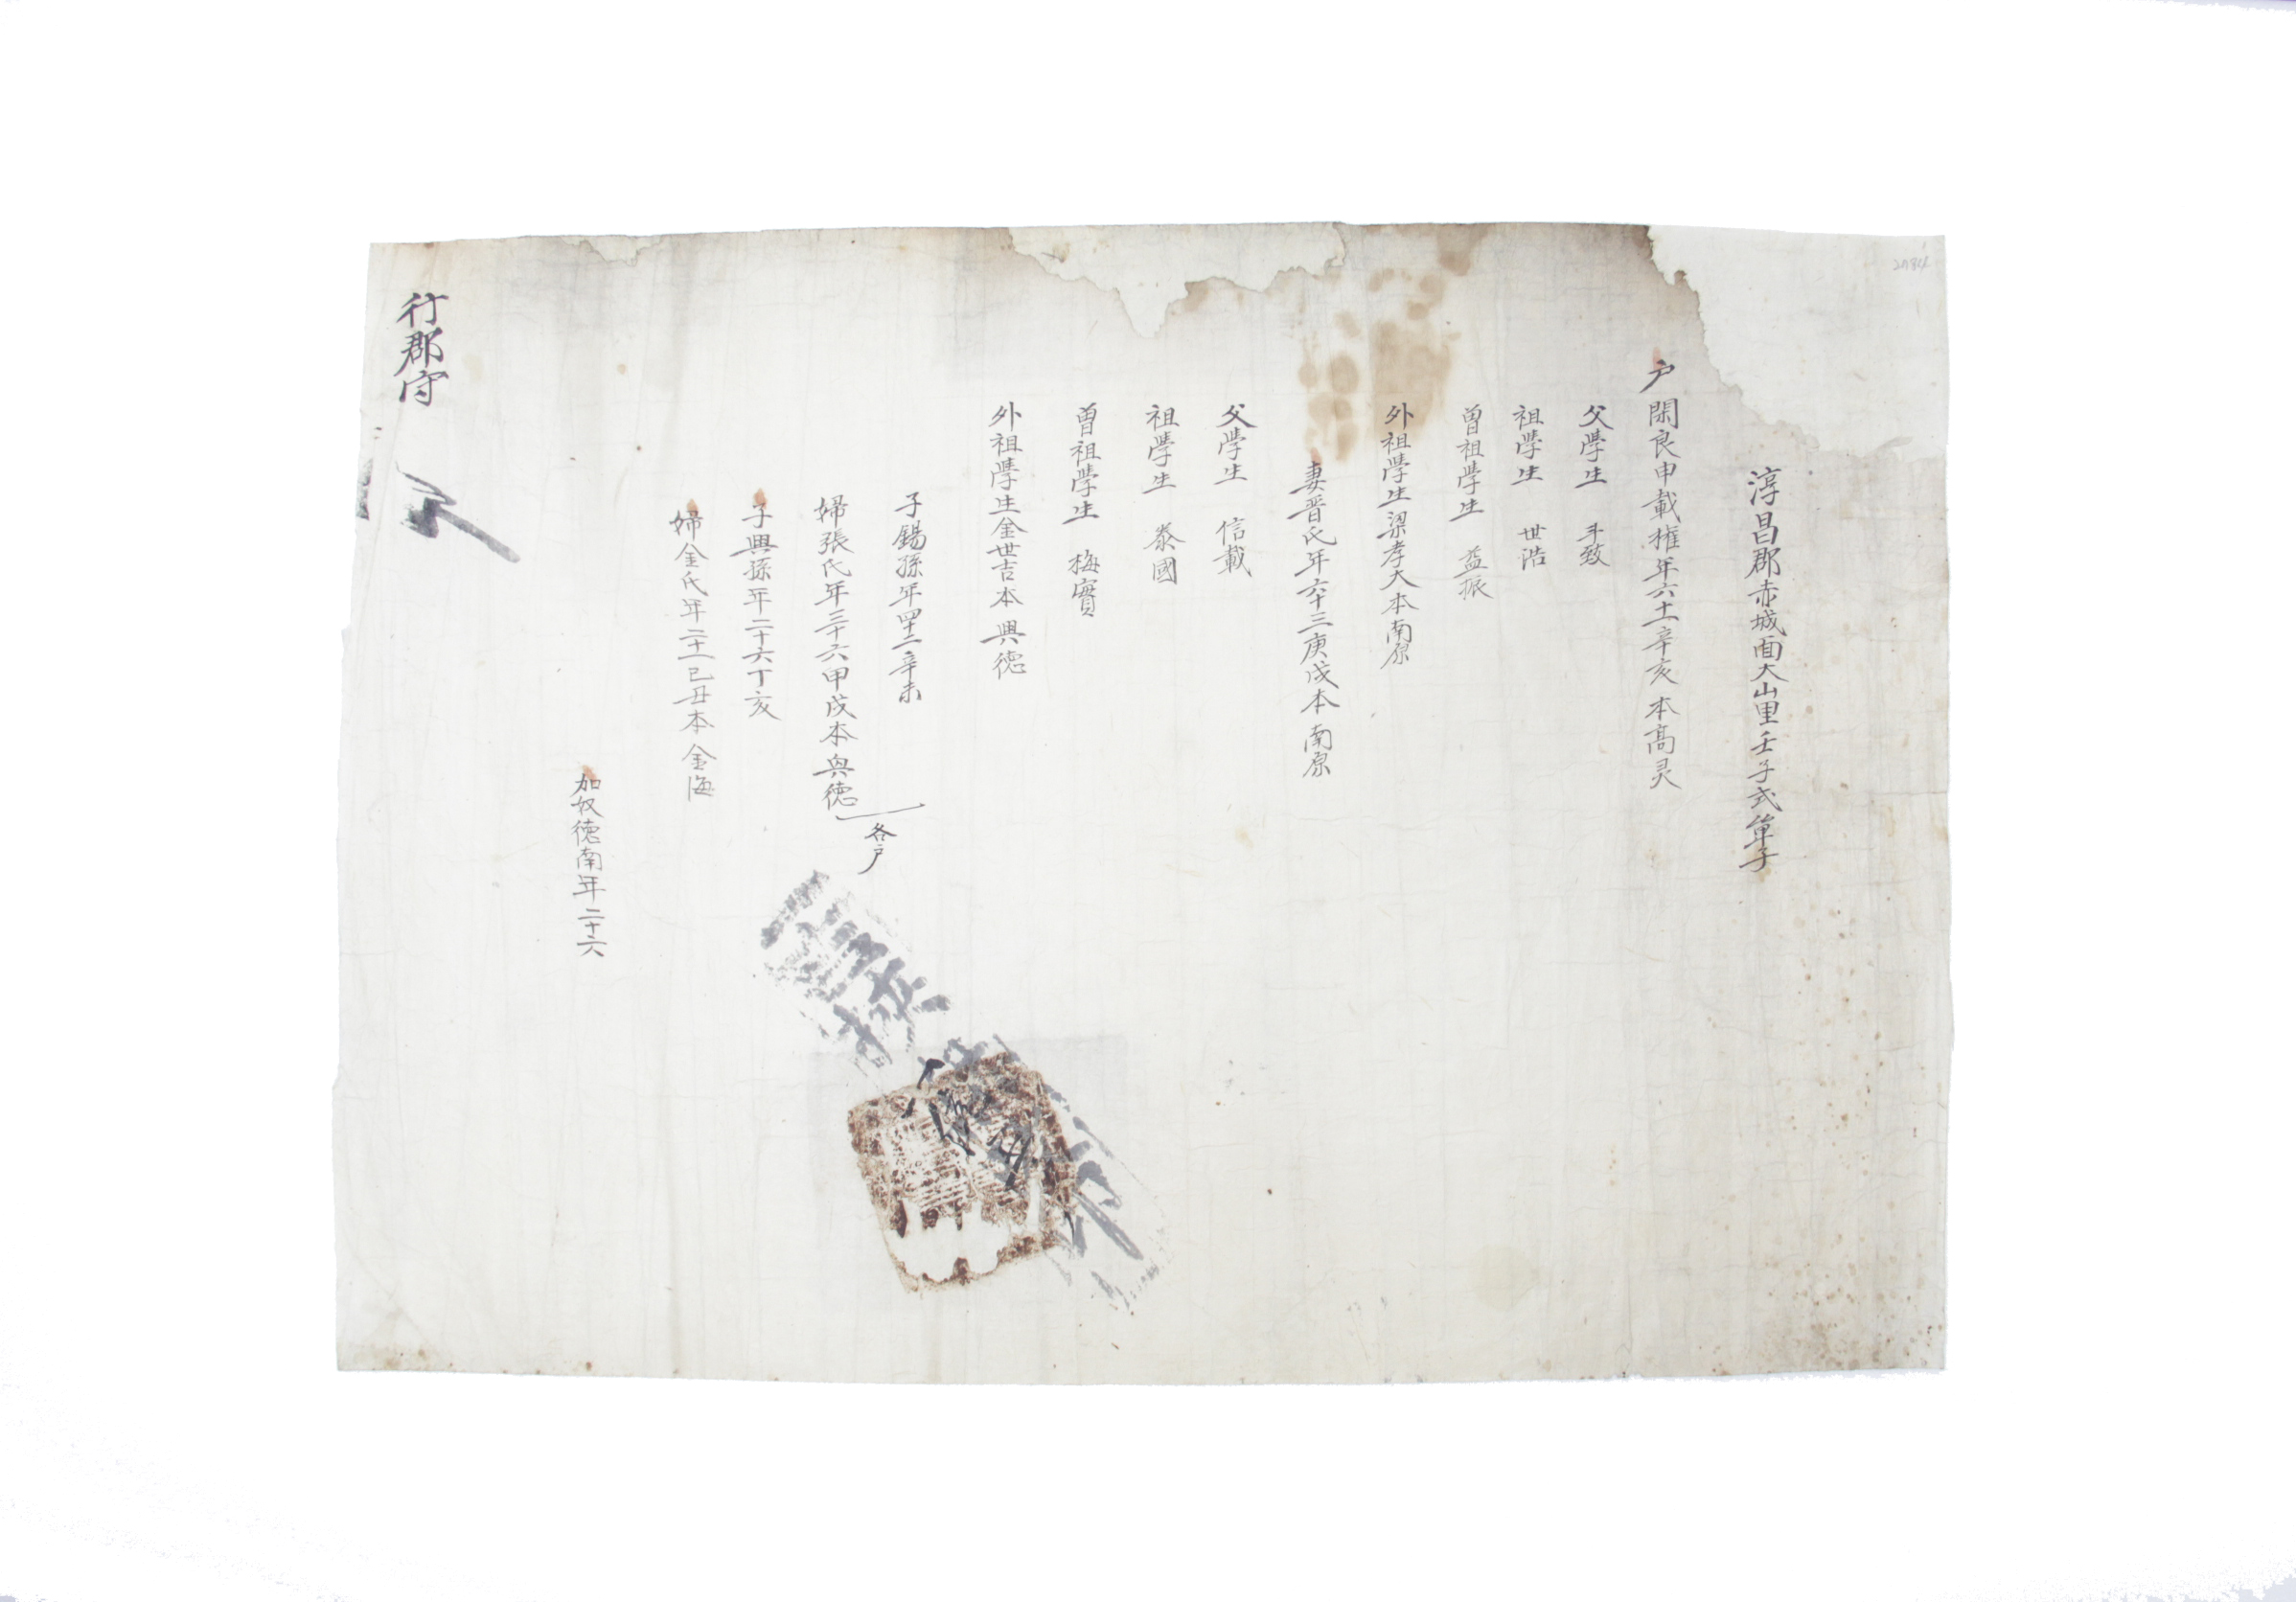 淳昌郡赤城面大山里壬子式單子
戶閑良申載權年六十二辛亥本高灵
父學生 斗致
祖學生 世浩
曾祖學生 益振
外祖學生梁孝大本南原
妻晋氏年六十三庚戌本南原
父學生 信載
祖學生 泰國
曾祖學生 梅實
外祖學生金世吉本興德
子錫孫年四十二辛未
婦張氏年三十六甲戌本興德
各戶
子興孫年二十六丁亥
婦金氏年二十一己丑本金海
加奴德南年二十六
行郡守